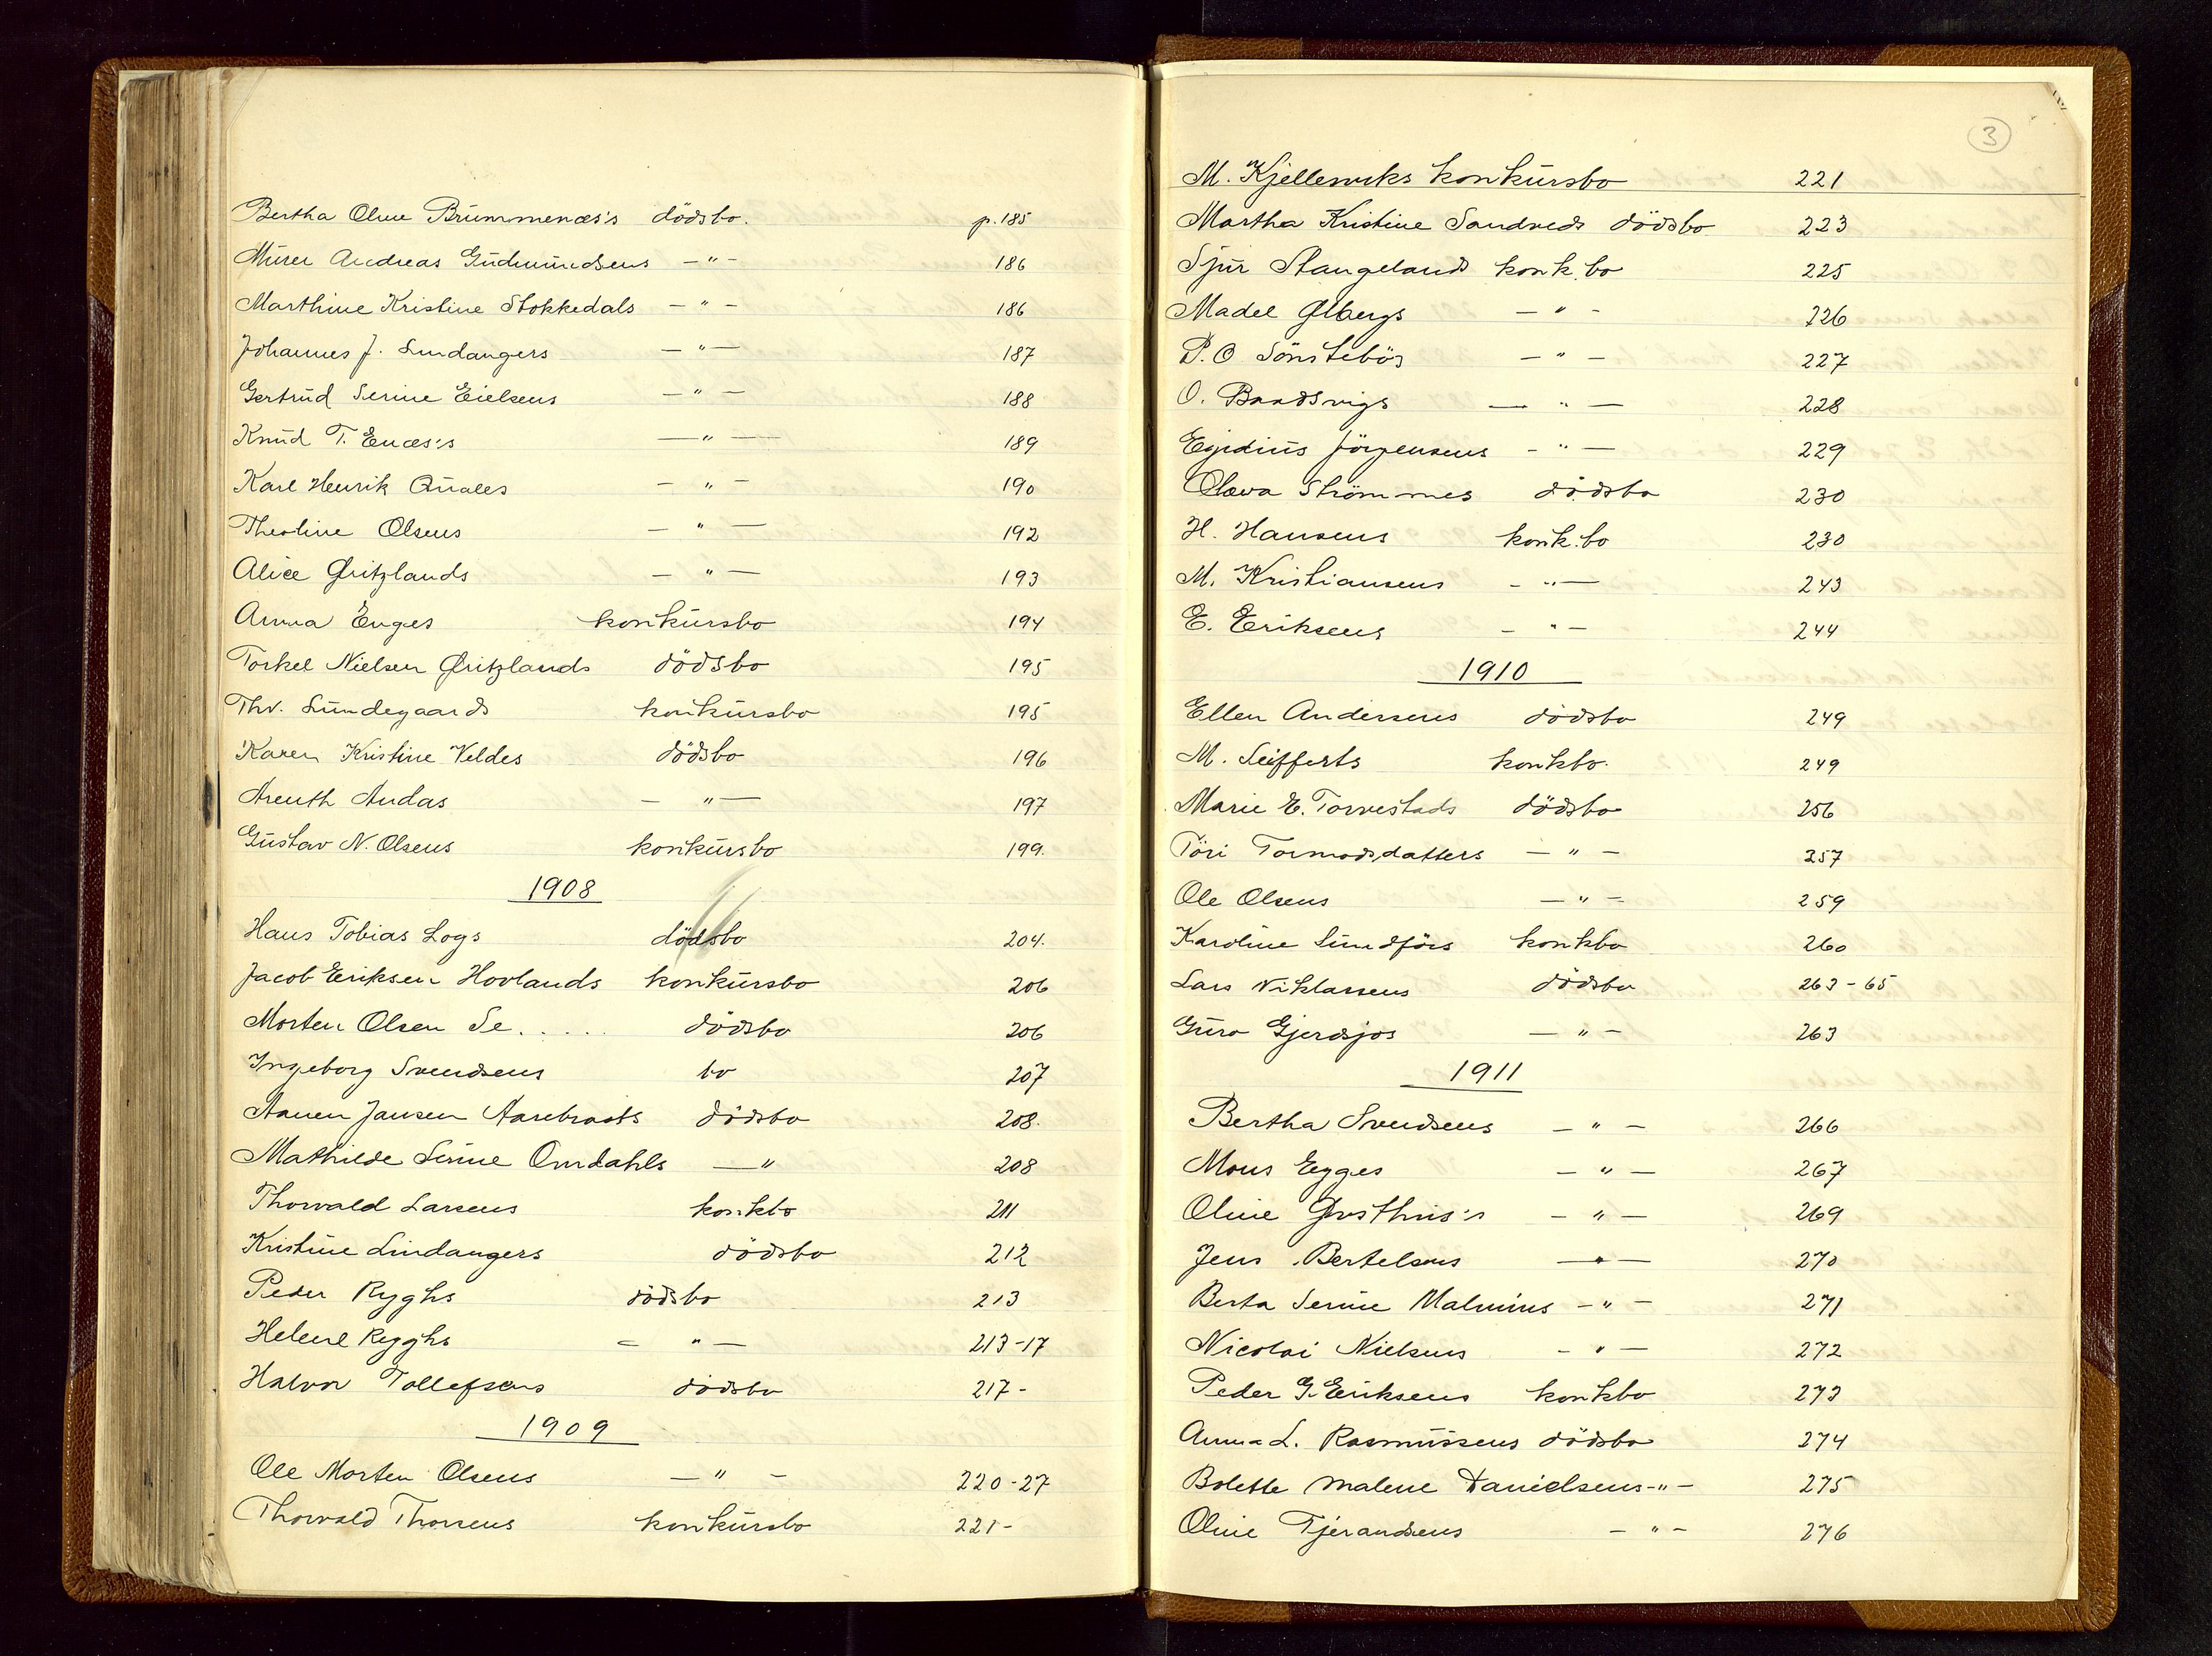 Bertha Oline Brummenæs's dödsbo. p. 185
Murer Andreas Gudmundsens — " — 186
Marthine Kristine Stokkedals — " — 186
Johannes J. Lindangers — " — 187
Gertrud Serine Eielsens — " — 188
Knud T. Enæs's — " — 189
Karl Henrik Qvales — " — 190
Theoline Olsens — " — 192
Alice Øritzlands — " — 193
Anna Enges konkursbo 194
Torkel Nielsen Øritzlands dödsbo 195
Thv. Lundegaards konkursbo 195
Karen Kristine Veldes dödsbo 196
Arenth Andas — " — 197
Gustav N. Olsens konkursbo 199.
1908
Hans Tobias Logs dödsbo 204.
Jacob Eriksen Hovlands konkursbo 206
Morten Olsen Se..... dödsbo 206
Ingeborg Svendsens bo 207
Aanen Jansen Aarebrots dödsbo 208.
Mathilde Serine Omdahls — " 208
Thorvald Larsens konkbo 211
Kristine Lindangers dödsbo 212
Peder Ryghs dödsbo 213
Helene Ryghs — " — 213-17
Halvor Tollefsens dödsbo 217-
1909
Ole Morten Olsens — " — 220-27
Thorvald Thorsens konkursbo 221-
3
M. Kjelleviks konkursbo 221
Martha Kristine Sandveds dödsbo 223
Sjur Stangelands konk.bo 225
Madel Ølbergs — " — 226
P. O Sönstebös — " — 227
O. Baadsvigs — " — 228
Egidius Jörgensens — " — 229
Olava Strömmes dödsbo 230
H. Hansens konk.bo 230
M. Kristiansens — " — 243
E. Eriksens — " — 244
1910
Ellen Andersens dödsbo 249
M. Seifferts konkbo. 249
Marie E. Torvestads dödsbo 256
Töri Tormodsdatters — " — 257
Ole Olsens — " — 259
Karoline Sundförs konkbo 260
Lars Niklassens dödsbo 263-65
Guro Gjerdsjos — " — 263
1911
Bertha Svendsens — " — 266
Mons Egges — " — 267
Oline Østhus's — " — 269
Jens Bertelsens — " — 270
Berta Serine Malmins — " — 271
Nicolai Nielsens — " — 272
Peder G. Eriksens konkbo 273
Anna L. Rasmussens dödsbo 274
Bolette Malene Danielsens — " — 275
Oline Tjerandsens — " — 276